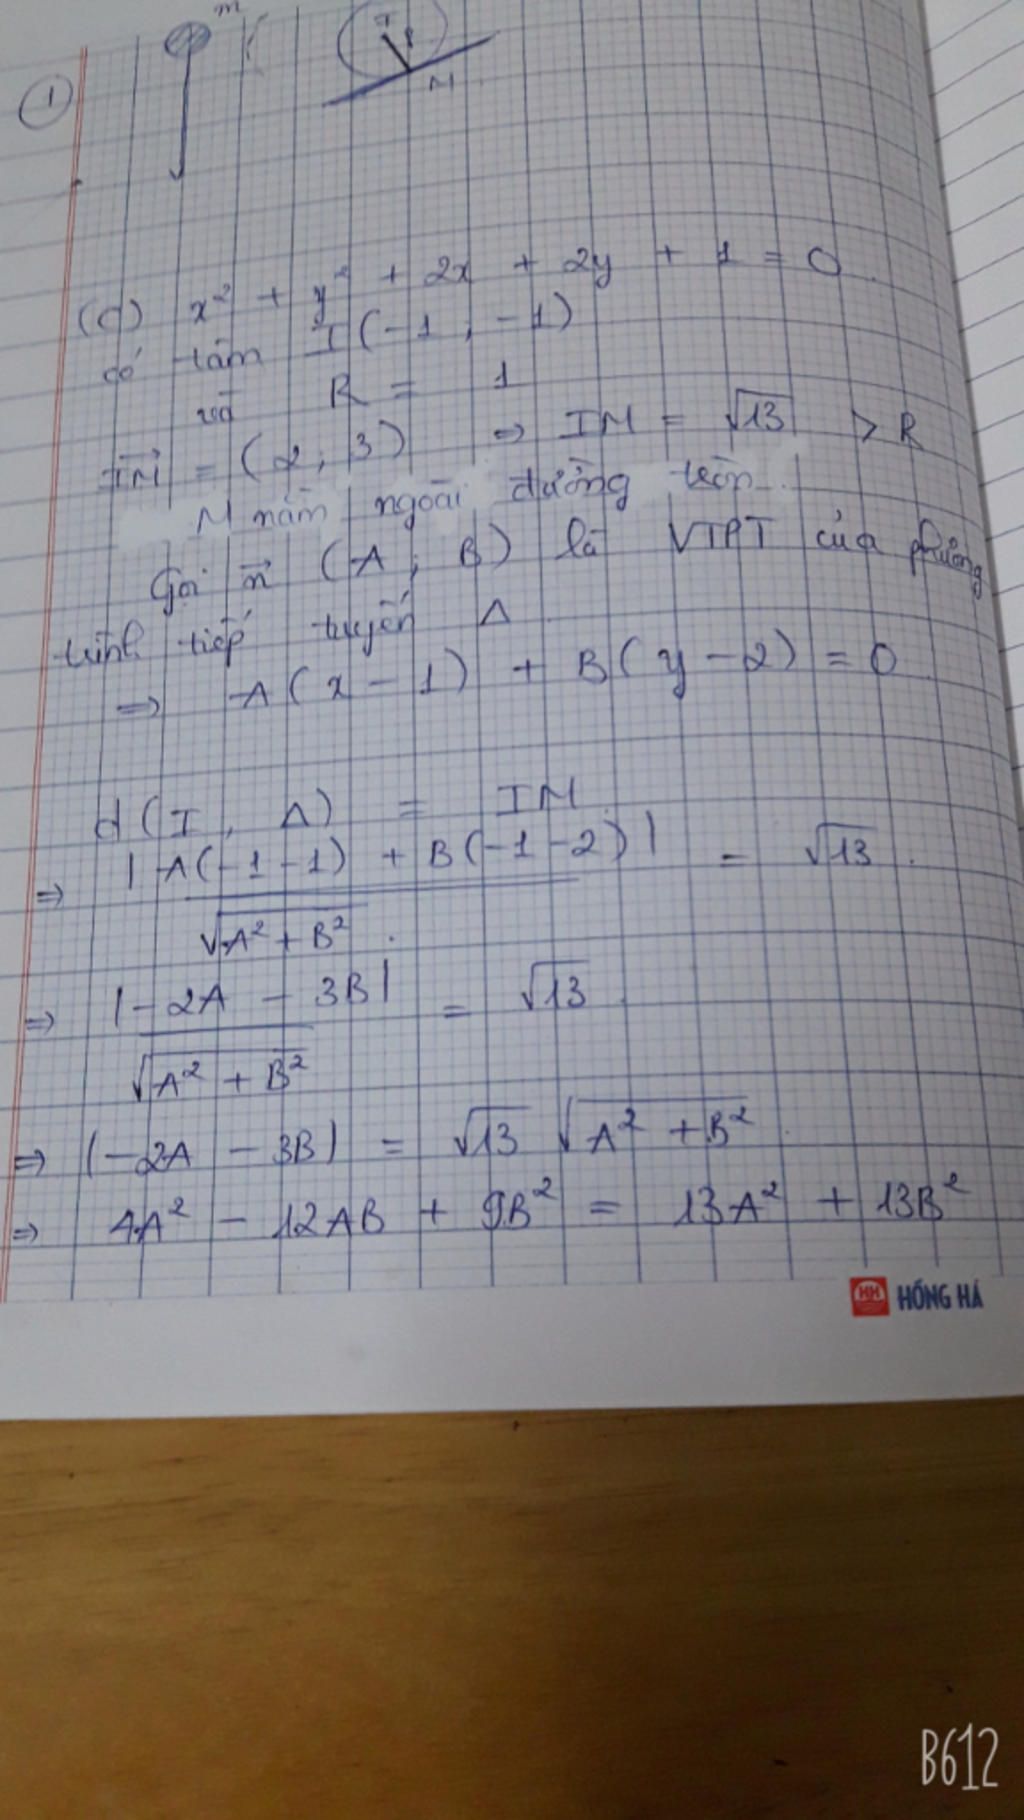 m
I
R
M
1
(C) x² + y² + 2x + 2y + 1 = 0
có tâm I(-1, -1)
và R = 1
IM = (2; 3) ⇒ IM = √13 > R
M nằm ngoài đường tròn
Gọi n (A; B) là VTPT của phương
trình tiếp tuyến Δ
⇒ A(x-1) + B(y-2) = 0
d(I, Δ) = IM
⇒ |A(-1-1) + B(-1-2)| / √A² + B² = √13
⇒ |-2A - 3B| / √A² + B² = √13
⇒ |-2A - 3B| = √13 √A² + B²
⇒ 4A² - 12AB + 9B² = 13A² + 13B²
HH HỒNG HÀ
B612